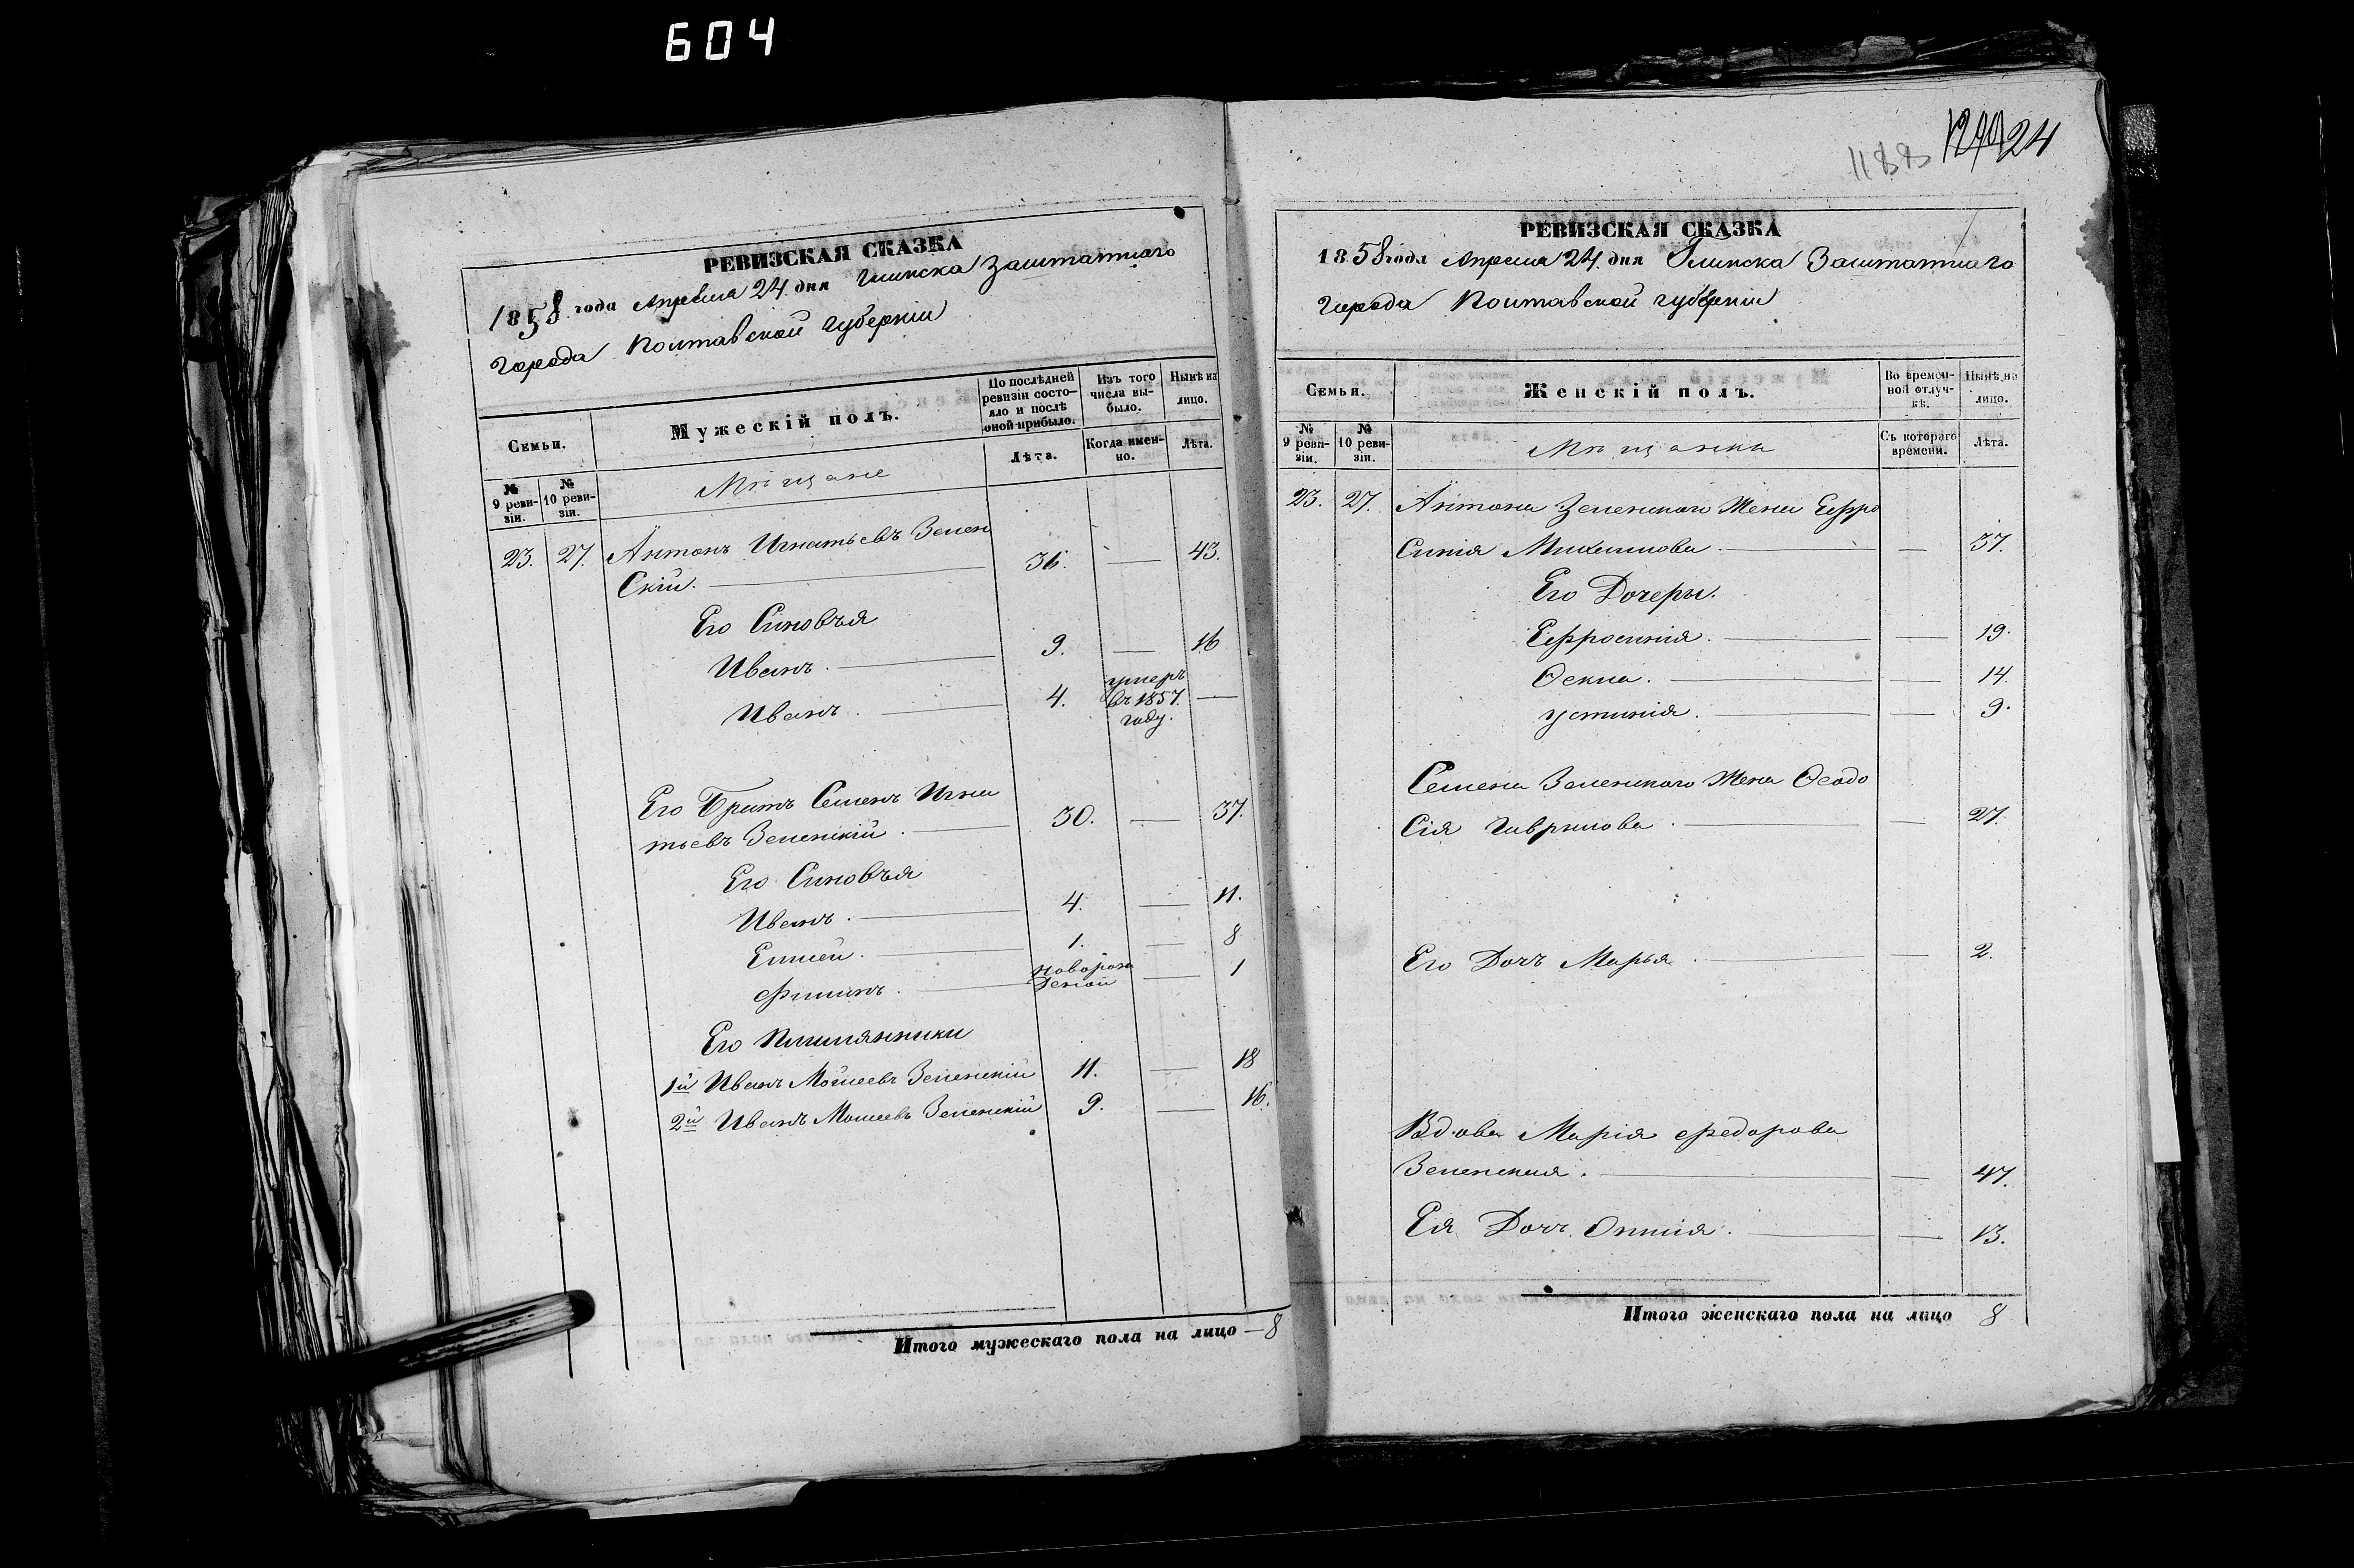 604
РЕВИЗСКАЯ СКАЗКА
1858 года Апреля 24 дня Глинска Заштатнаго
города Полтавской губерніи
Семьи.
Мужескій полъ.
По послѣдней ревизіи состояло и послѣ оной прибыло.
Изъ того числа выбыло.
Нынѣ на лицо.
№ 9 ревизіи.
№ 10 ревизіи.
Мѣщане
Лѣта.
Когда именно.
Лѣта.
23. 27. Антонъ Игнатьевъ Зелен
скій. 36. — 43.
Его Синовъя
Иванъ. 9. — 16
Иванъ. 4. умеръ въ 1857. году. —
Его Братъ Семенъ Игна
тьевъ Зеленскій. 30. — 37.
Его Синовъя
Иванъ. 4. — 11.
Елисей. 1. — 8
Филипъ. новорож деной — 1
Его Племянники
1й Иванъ Мойсеевъ Зеленскій 11. — 18
2й Иванъ Мойсеевъ Зеленскій 9. — 16.
Итого мужескаго пола на лицо — 8
1188 24
РЕВИЗСКАЯ СКАЗКА
1858 года Апреля 24. дня Глинска Заштатнаго
города Полтавской губерніи
Семьи.
Женскій полъ.
Во временной отлучкѣ.
Нынѣ на лицо.
№ 9 ревизіи.
№ 10 ревизіи.
Мѣщанки
Съ котораго времени.
Лѣта.
23. 27. Антона Зеленского Жена Ефро
синія Михаилова. — 37.
Его Дочеры.
Ефросинія. — 19.
Фекла. — 14
Устинія. — 9.
Семена Зеленского Жена Феодо
сія Гаврилова. — 27.
Его Дочъ Марья. — 2.
Вдова Марія Федорова
Зеленская. — 47.
Ея Дочъ 13.
Итого женскаго пола на лицо 8